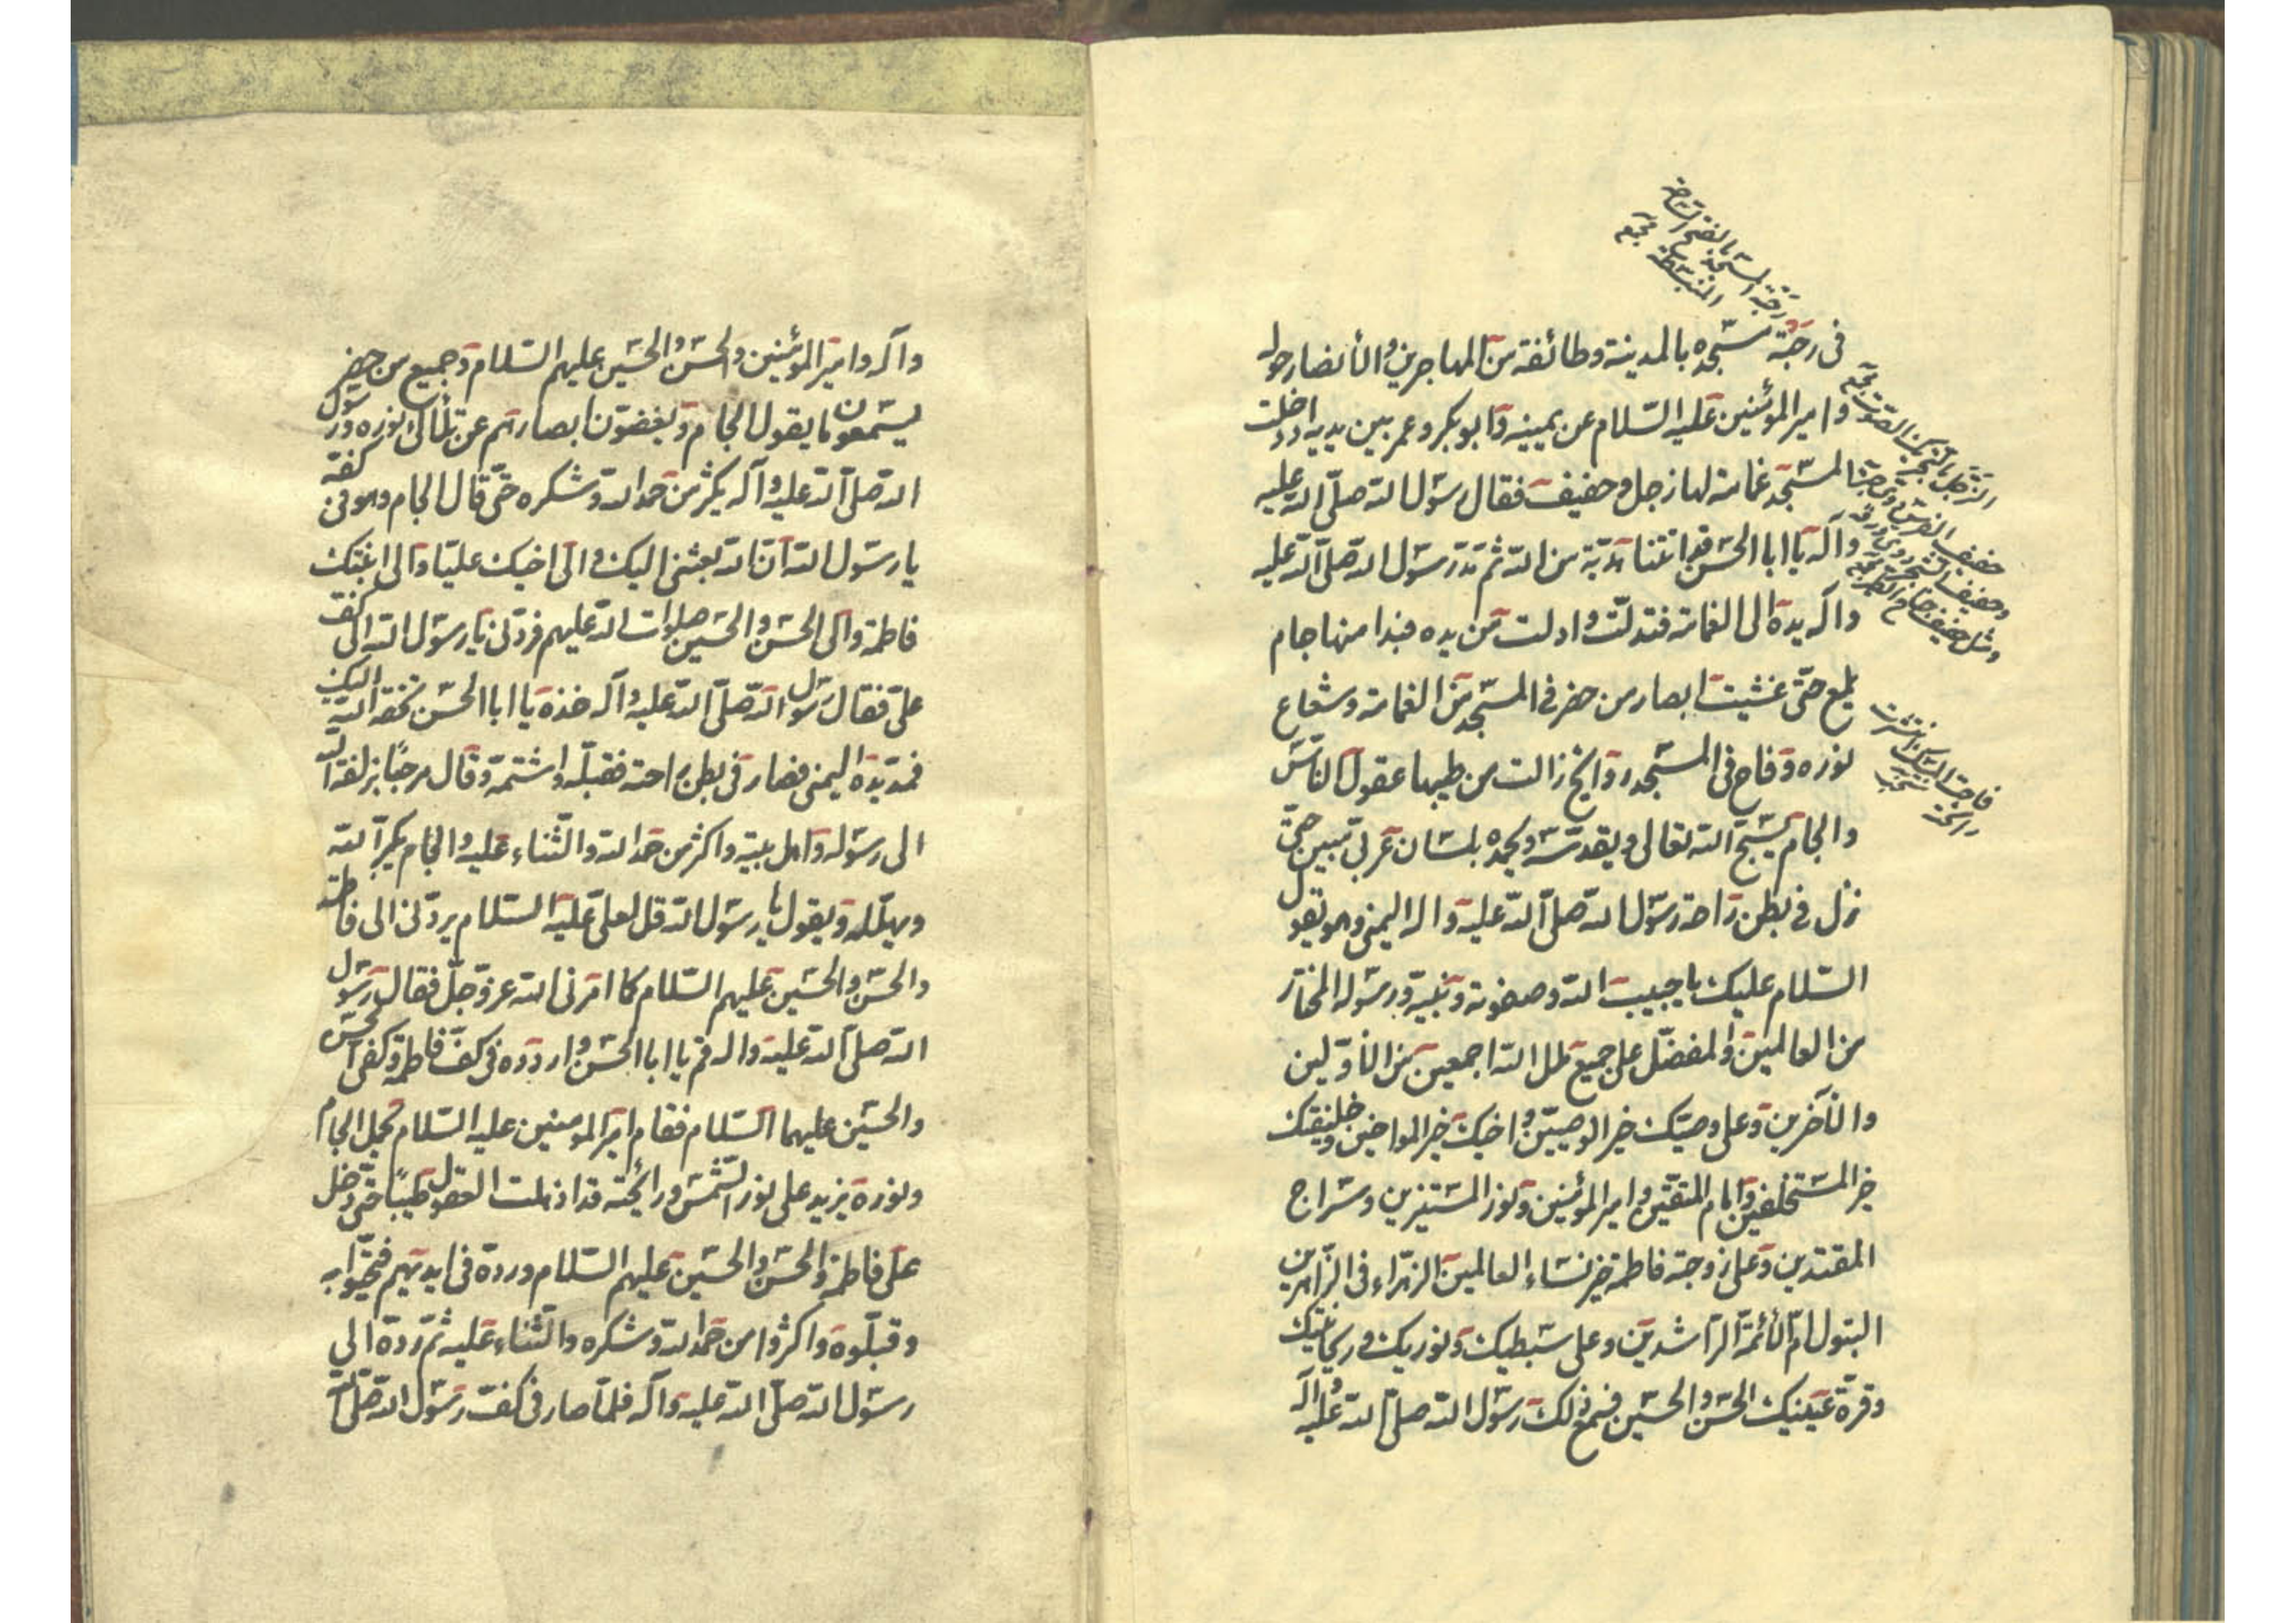 رحبة المسجد بالفتح الساحة
المنبسطة مجمع
فى رحبة مسجده بالمدينة وطائفة من المهاجرين والأنصار حوله
وامير المؤمنين عليه السلام عن يمينه وابو بكر وعمر بين يديه اذ دخلت
المسجد غمامة لها زجل وحفيف فقال رسول الله صلى الله عليه
وآله يا ابا الحسن قد اتتنا هدية من الله ثم مد رسول الله صلى الله عليه
وآله يده الى الغمامة فتدلت وادلت من يده فبدا منها جام
يلمع حتى غشيت ابصار من حضر فى المسجد من الغمامة وشعاع
نوره وفاح فى المسجد روائح زالت من طيبها عقول الناس
والجام يسبح الله تعالى ويقدسه ويحمده بلسان عربى مبين حتى
نزل فى بطن راحة رسول الله صلى الله عليه واله اليمنى وهو يقول
السلام عليك يا حبيب الله وصفوته ونبيه ورسوله المختار
من العالمين والمفضل على جميع ملل الله اجمعين من الأولين
والآخرين وعلى وصيك خير الوصيين واخيك خير المواخين وخليفتك
خير المستخلفين وامام المتقين وامير المؤمنين ونور المستنيرين وسراج
المقتدين وعلى زوجته فاطمة خير نساء العالمين الزهراء فى الزاهرين
البتول ام الأئمة الراشدين وعلى سبطيك ونوريك وريحانتيك
وقرة عينيك الحسن والحسين فسمع ذلك رسول الله صلى الله عليه وآله
الزجل بالتحريك الصوت مجمع
فاحت المسك انتشرت
رائحته
وآله وامير المؤمنين والحسن والحسين عليهم السلام وجميع من حضر
يستمعون ما يقول الجام ويغضون ابصارهم عن تلألؤ نوره ورسول
الله صلى الله عليه وآله يكثر من حمد الله وشكره حتى قال الجام وهو فى كفه
يا رسول الله ان الله بعثنى اليك والى اخيك على والى ابنتك
فاطمة والى الحسن والحسين صلوات الله عليهم فردنى يا رسول الله الى كف
على فقال رسول الله صلى الله عليه وآله خذه يا ابا الحسن تحفة الله اليك
فمد يده اليمنى فصار فى بطن راحته فقبله واشتمه وقال مرحبا بزلفة الله
الى رسوله واهل بيته واكثر من حمد الله والثناء عليه والجام يكبر الله
ويهلله ويقول يا رسول الله قل لعلى عليه السلام يردنى الى فاطمة
والحسن والحسين عليهم السلام كما امرنى الله عز وجل فقال رسول
الله صلى الله عليه واله قم يا ابا الحسن واردده فى كف فاطمة وكفى الحسن
والحسين عليهما السلام فقام امير المومنين عليه السلام يحمل الجام
ونوره يزيد على نور الشمس ورائحته قد اذهلت العقول طيبا حتى دخل
على فاطمة والحسن والحسين عليهم السلام ورده فى ايديهم فتحيوا به
وقبلوه واكثروا من حمد الله وشكره والثناء عليه ثم رده الى
رسول الله صلى الله عليه وآله فلما صار فى كف رسول الله صلى الله